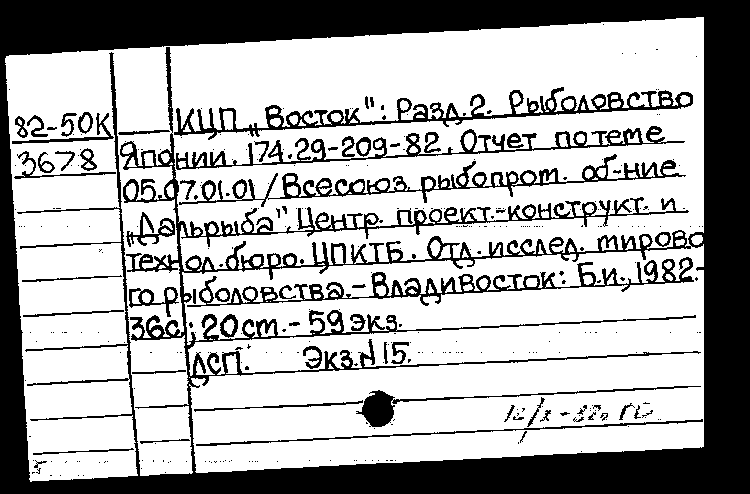 82-50К
3678
КЦП „Восток": Разд.2. Рыболовство
Японии. 174.29-209-82. Отчет по теме
05.07.01.01/Всесоюз. рыбопром. об-ние
„Дальрыба". Центр. проект.-конструкт. и
технол. бюро. ЦПКТБ. Отд. исслед. мирово
го рыболовства.-Владивосток: Б.и., 1982.-
36с.; 20 cm.- 59 экз.
ДСП. Экз.N15.